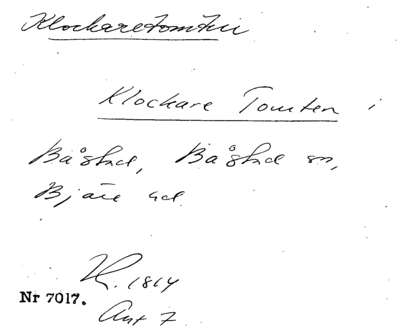 Klockaretomten
Klockare Tomten i
Båstad, Båstad sn,
Bjäre hd
1814
Nr 7017.
Ant 7